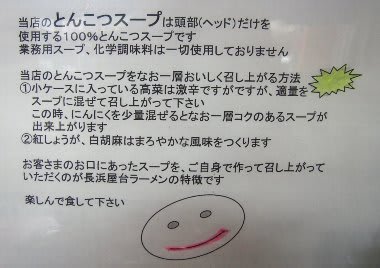 当店のとんこつスープは頭部(ヘッド)だけを
使用する100%とんこつスープです
業務用スープ、化学調味料は一切使用しておりません
当店のとんこつスープをなお一層おいしく召し上がる方法
①小ケースに入っている高菜は激辛ですがですが、適量を
スープに混ぜて召し上がって下さい
この時、にんにくを少量混ぜるとなお一層コクのあるスープが
出来上がります
②紅しょうが、白胡麻はまろやかな風味をつくります
お客さまのお口にあったスープを、ご自身で作って召し上がって
いただくのが長浜屋台ラーメンの特徴です
楽しんで食して下さい